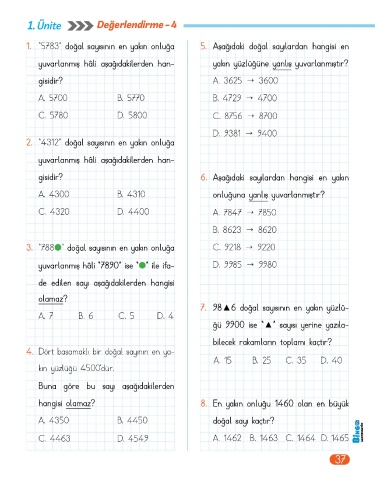 1. Ünite Değerlendirme - 4
1. "5783" doğal sayısının en yakın onluğa
yuvarlanmış hâli aşağıdakilerden han-
gisidir?
A. 5700 B. 5770
C. 5780 D. 5800
2. "4312" doğal sayısının en yakın onluğa
yuvarlanmış hâli aşağıdakilerden han-
gisidir?
A. 4300 B. 4310
C. 4320 D. 4400
3. "788●" doğal sayısının en yakın onluğa
yuvarlanmış hâli "7890" ise "●" ile ifa-
de edilen sayı aşağıdakilerden hangisi
olamaz?
A. 7 B. 6 C. 5 D. 4
4. Dört basamaklı bir doğal sayının en ya-
kın yüzlüğü 4500'dür.
Buna göre bu sayı aşağıdakilerden
hangisi olamaz?
A. 4350 B. 4450
C. 4463 D. 4549
5. Aşağıdaki doğal sayılardan hangisi en
yakın yüzlüğüne yanlış yuvarlanmıştır?
A. 3625 → 3600
B. 4729 → 4700
C. 8756 → 8700
D. 9381 → 9400
6. Aşağıdaki sayılardan hangisi en yakın
onluğuna yanlış yuvarlanmıştır?
A. 7847 → 7850
B. 8623 → 8620
C. 9218 → 9220
D. 9985 → 9980
7. 98▲6 doğal sayısının en yakın yüzlü-
ğü 9900 ise "▲" sayısı yerine yazıla-
bilecek rakamların toplamı kaçtır?
A. 15 B. 25 C. 35 D. 40
8. En yakın onluğu 1460 olan en büyük
doğal sayı kaçtır?
A. 1462 B. 1463 C. 1464 D. 1465
37